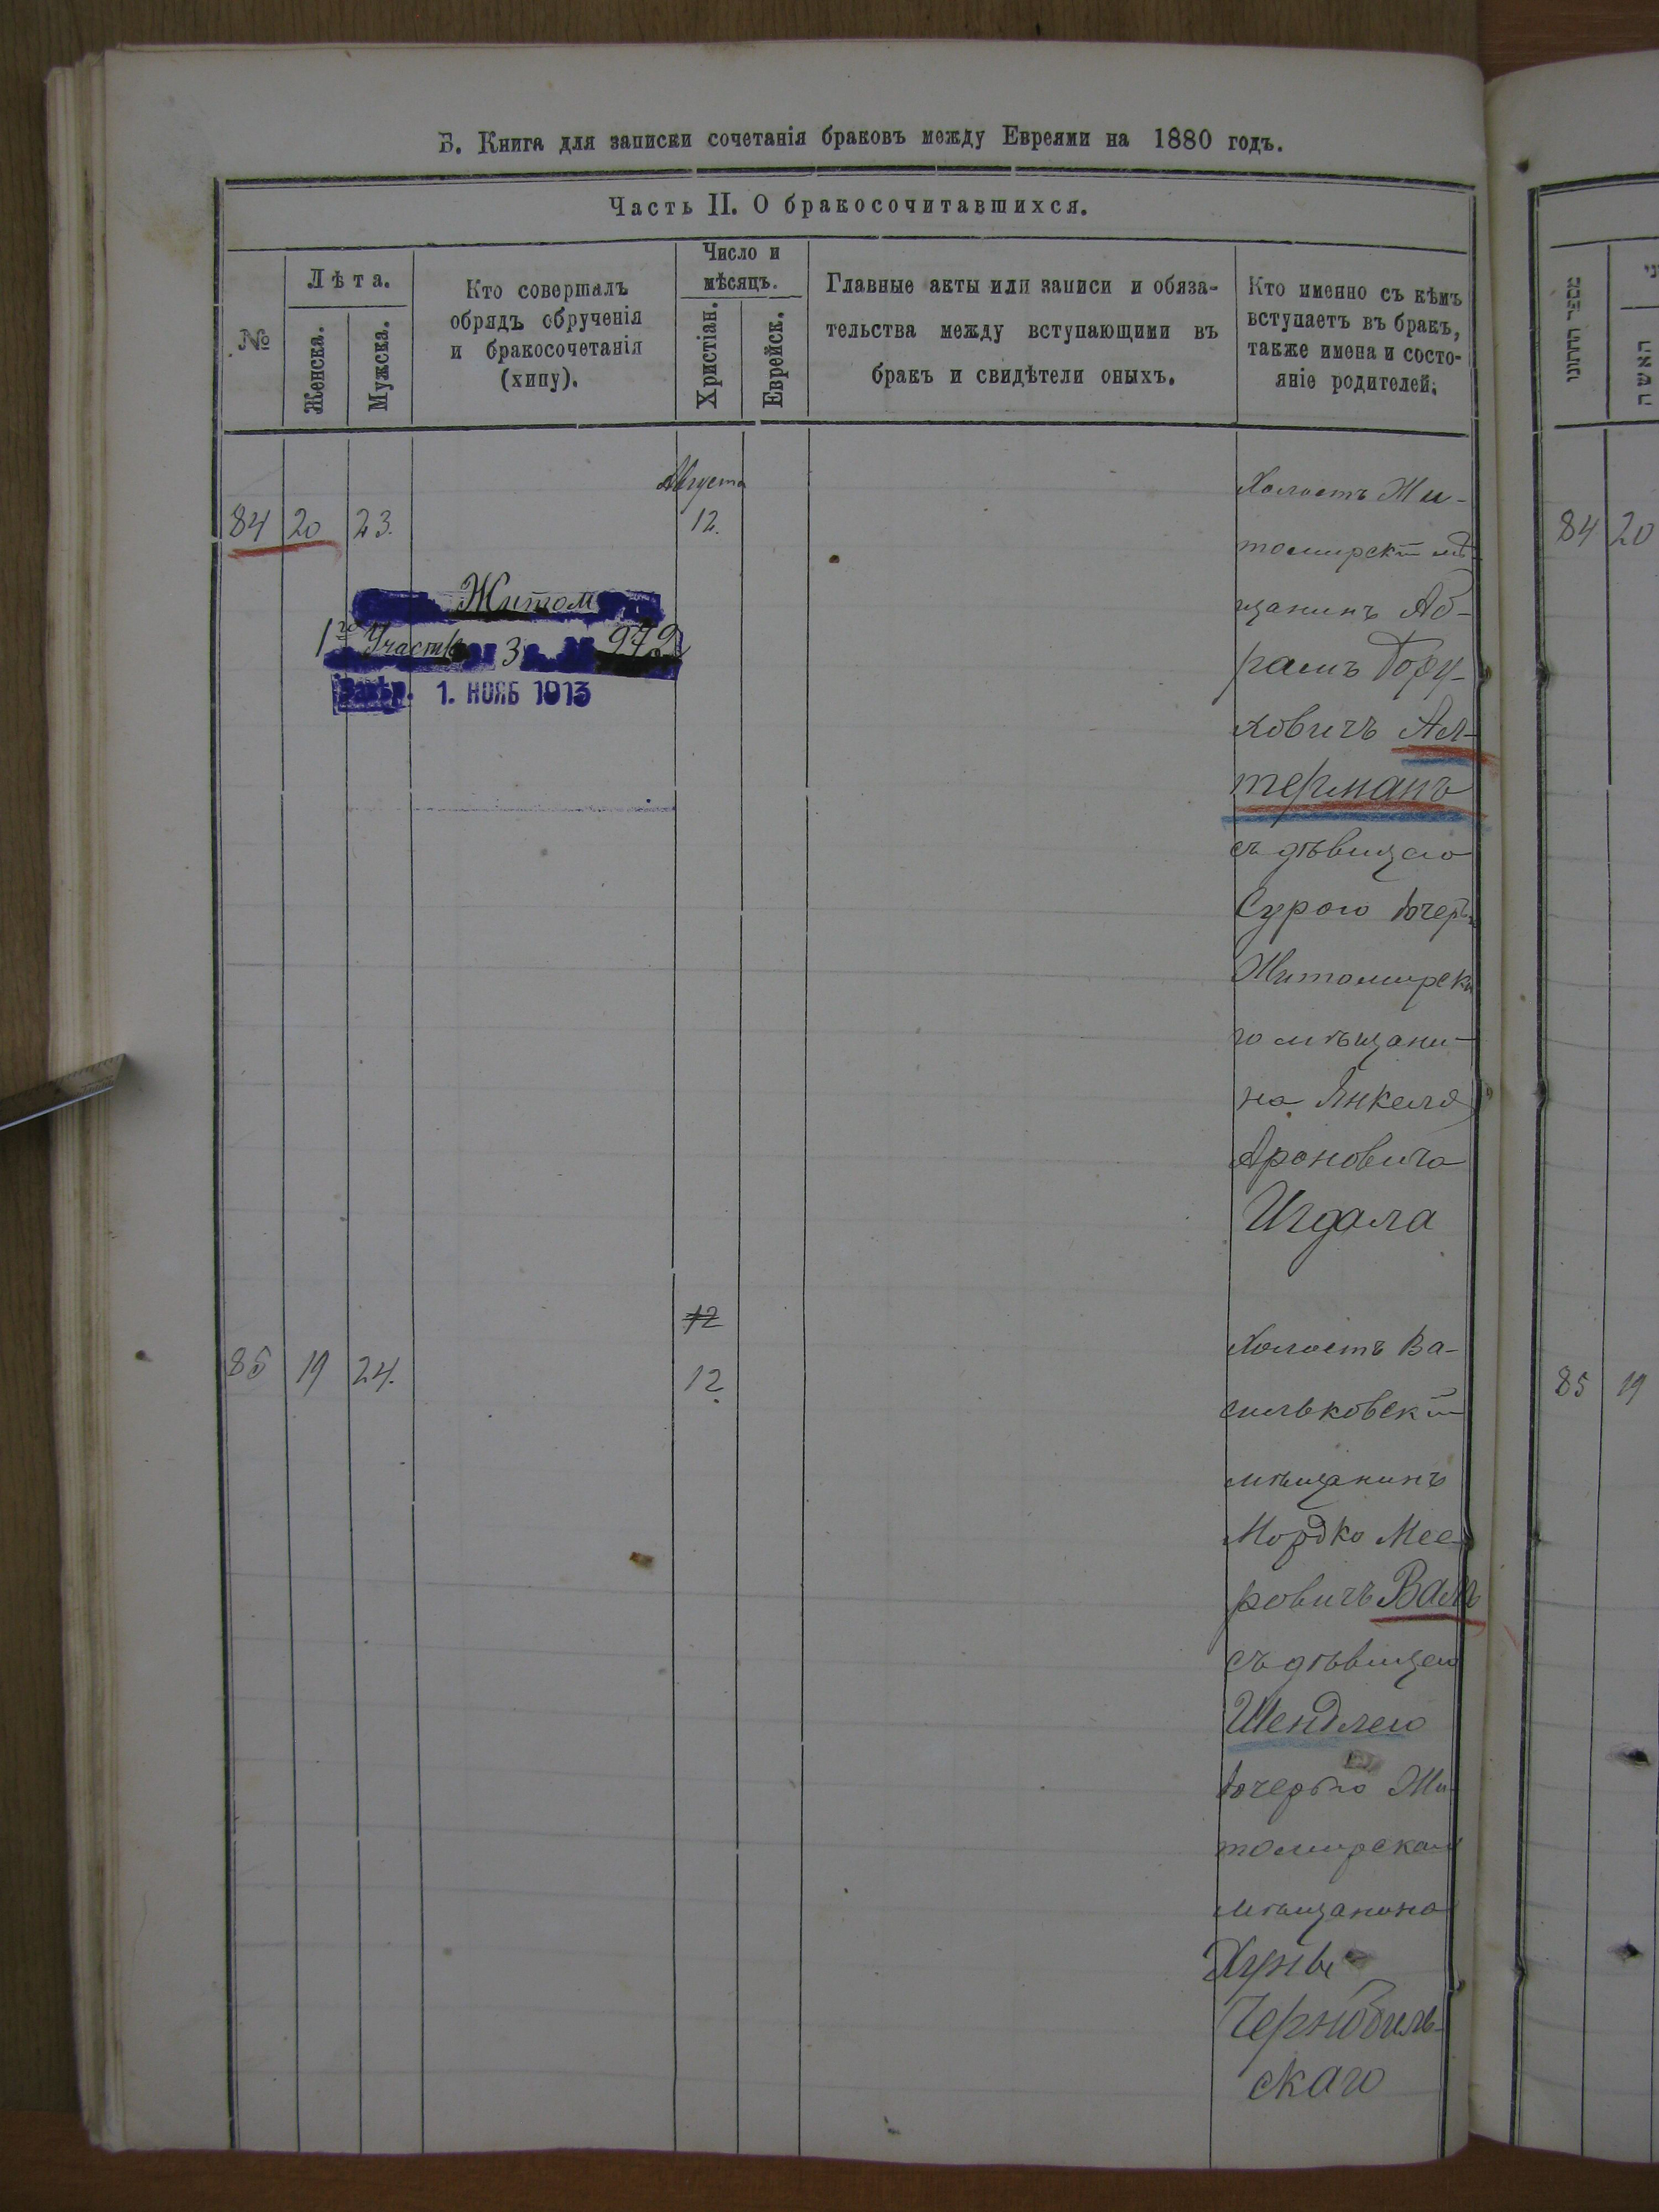 Б. Книга для записки сочетанія браковъ между Евреями на 1880 годъ.
Часть II. О бракосочитавшихся.
№
Лѣта.
Женска.
Мужска.
Кто совершалъ
обрядъ обрученія
и бракосочетанія
(хипу).
Число и
мѣсяцъ.
Христіан.
Еврейск.
Главные акты или записи и обяза-
тельства между вступающими въ
бракъ и свидѣтели оныхъ.
Кто именно съ кѣмъ
вступаетъ въ бракъ,
также имена и состо-
яніе родителей.
84 20 23.
Августа
12.
Холостъ Жи-
томирскій мѣ-
щанинъ Аб-
рамъ Бору-
ховичъ Ал-
терманъ
съ дѣвицею
Сурою дочерью
Житомирска
го мѣщани-
на Янкеля
Ароновича
Игдала
Житом
1го Участк 3 972
1. НОЯБ 1913
85 19 24.
12
12.
Холостъ Ва-
сильковскій
мѣщанинъ
Мордко Мее-
ровичъ
съ дѣвицею
Шендлею
дочерью Жи
томирскаго
мѣщанина
Хуны
Чернобиль-
скаго
מספר החתונו
האשה
84 20
85 19